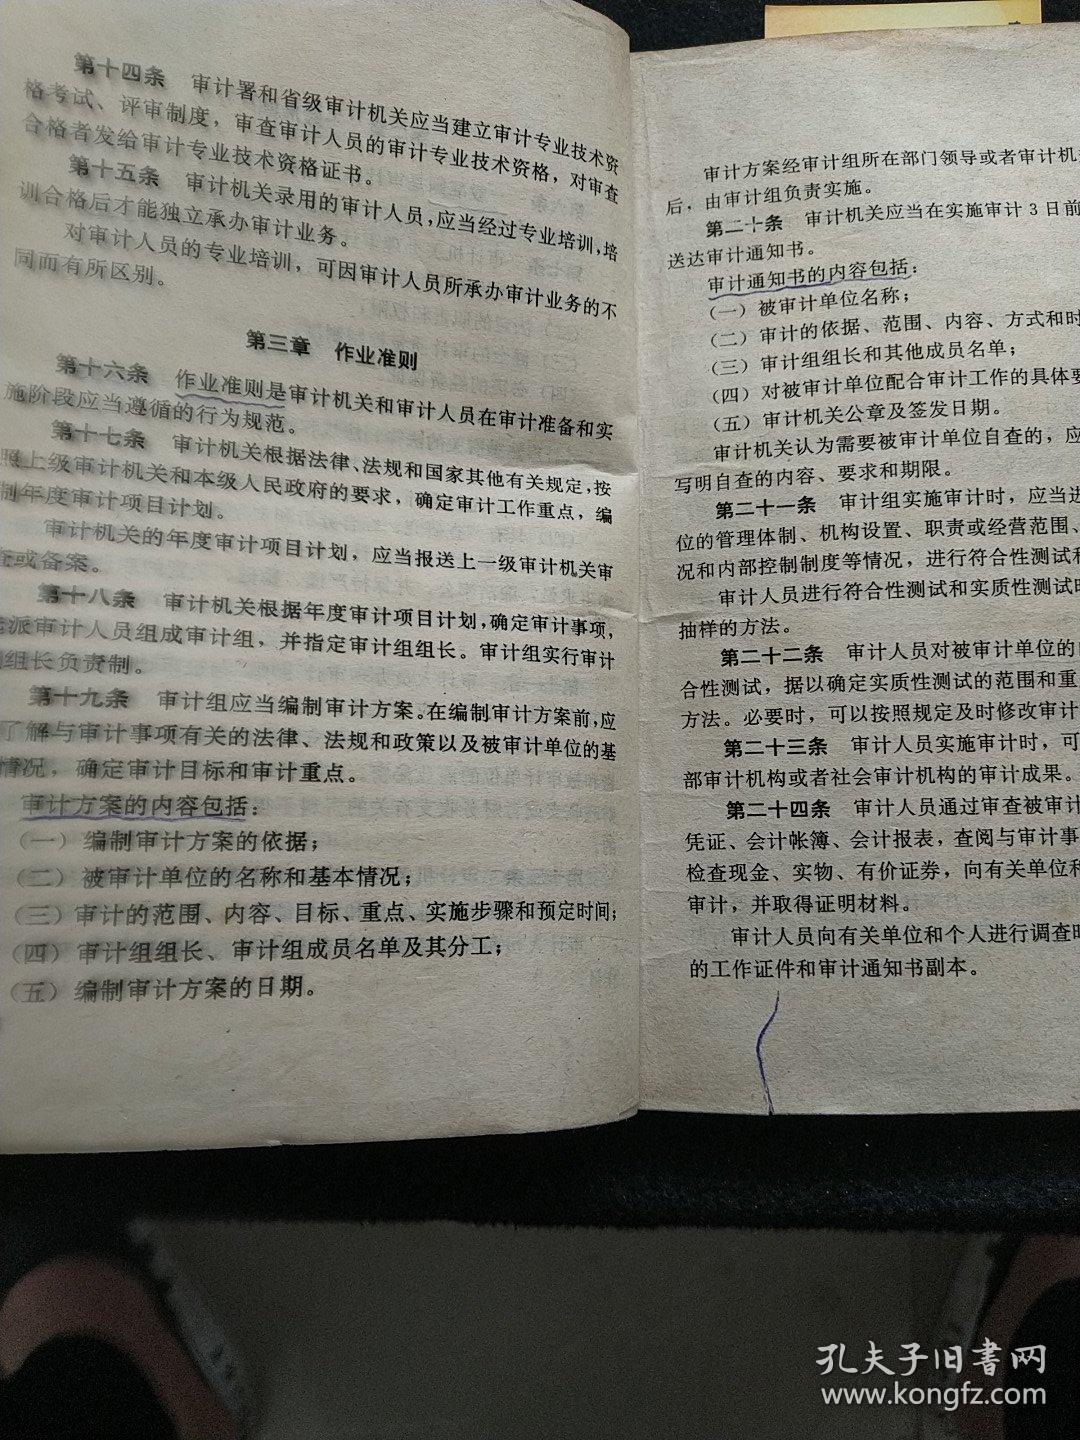 第十四条　审计署和省级审计机关应当建立审计专业技术资
格考试、评审制度，审查审计人员的审计专业技术资格，对审查
合格者发给审计专业技术资格证书。
第十五条　审计机关录用的审计人员，应当经过专业培训，培
训合格后才能独立承办审计业务。
对审计人员的专业培训，可因审计人员所承办审计业务的不
同而有所区别。
第三章　作业准则
第十六条　作业准则是审计机关和审计人员在审计准备和实
施阶段应当遵循的行为规范。
第十七条　审计机关根据法律、法规和国家其他有关规定，按
照上级审计机关和本级人民政府的要求，确定审计工作重点，编
制年度审计项目计划。
审计机关的年度审计项目计划，应当报送上一级审计机关审
查或备案。
第十八条　审计机关根据年度审计项目计划，确定审计事项，
派审计人员组成审计组，并指定审计组组长。审计组实行审计
组长负责制。
第十九条　审计组应当编制审计方案。在编制审计方案前，应
了解与审计事项有关的法律、法规和政策以及被审计单位的基
情况，确定审计目标和审计重点。
审计方案的内容包括：
（一）编制审计方案的依据；
（二）被审计单位的名称和基本情况；
（三）审计的范围、内容、目标、重点、实施步骤和预定时间；
（四）审计组组长、审计组成员名单及其分工；
（五）编制审计方案的日期。
审计方案经审计组所在部门领导或者审计机
后，由审计组负责实施。
第二十条　审计机关应当在实施审计3日前
送达审计通知书。
审计通知书的内容包括：
（一）被审计单位名称；
（二）审计的依据、范围、内容、方式和时
（三）审计组组长和其他成员名单；
（四）对被审计单位配合审计工作的具体要
（五）审计机关公章及签发日期。
审计机关认为需要被审计单位自查的，应
写明自查的内容、要求和期限。
第二十一条　审计组实施审计时，应当进
位的管理体制、机构设置、职责或经营范围、
况和内部控制制度等情况，进行符合性测试和
审计人员进行符合性测试和实质性测试时
抽样的方法。
第二十二条　审计人员对被审计单位的
合性测试，据以确定实质性测试的范围和重
方法。必要时，可以按照规定及时修改审计
第二十三条　审计人员实施审计时，可
部审计机构或者社会审计机构的审计成果。
第二十四条　审计人员通过审查被审计
凭证、会计帐簿、会计报表，查阅与审计事
检查现金、实物、有价证券，向有关单位和
审计，并取得证明材料。
审计人员向有关单位和个人进行调查时
的工作证件和审计通知书副本。
孔夫子旧书网
www.kongfz.com